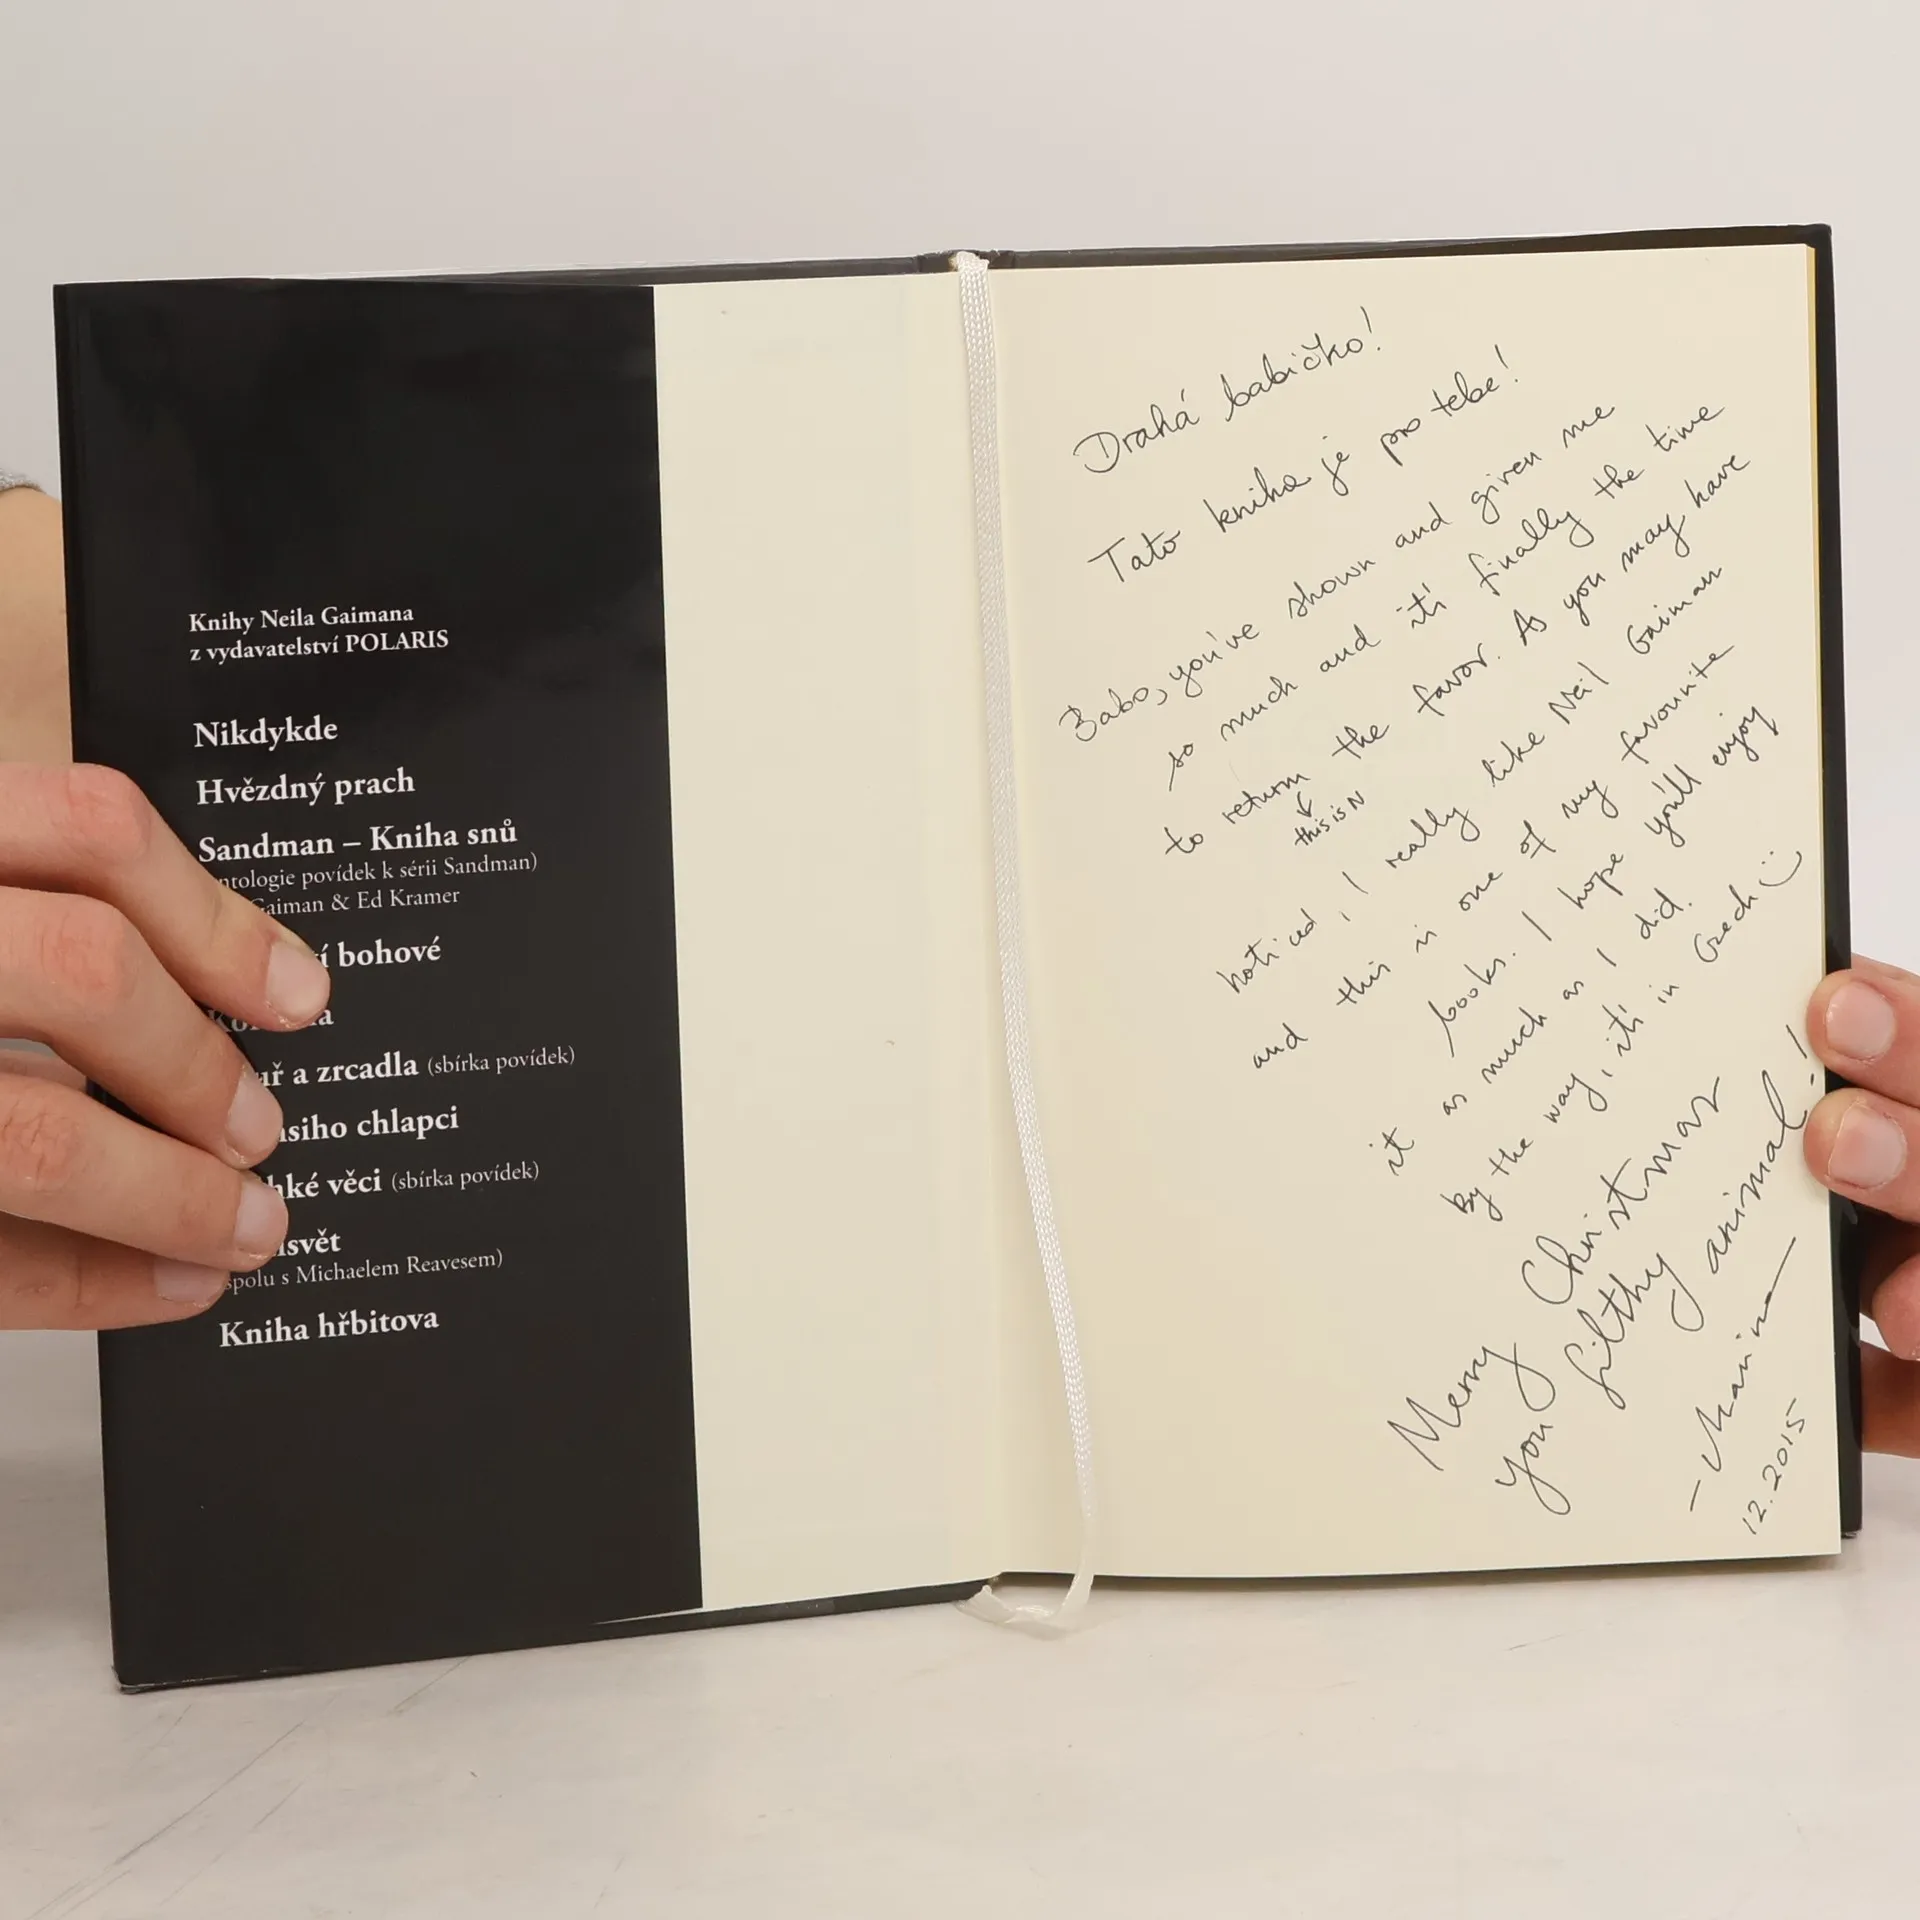 Knihy Neila Gaimana
z vydavatelství POLARIS
Nikdykde
Hvězdný prach
Sandman – Kniha snů
ntologie povídek k sérii Sandman)
Gaiman & Ed Kramer
í bohové
Ko a
uř a zrcadla (sbírka povídek)
nsiho chlapci
hké věci (sbírka povídek)
isvět
spolu s Michaelem Reavesem)
Kniha hřbitova
Drahá babičko!
Tato kniha je pro tebe!
Babo, you've shown and given me
so much and it's finally the time
to return the favor. As you may have
this is N
noticed, I really like Neil Gaiman
and this is one of my favourite
books. I hope you'll enjoy
it as much as I did.
By the way, it's in Czech :)
Merry Christmas
you filthy animal!
—
12.2015